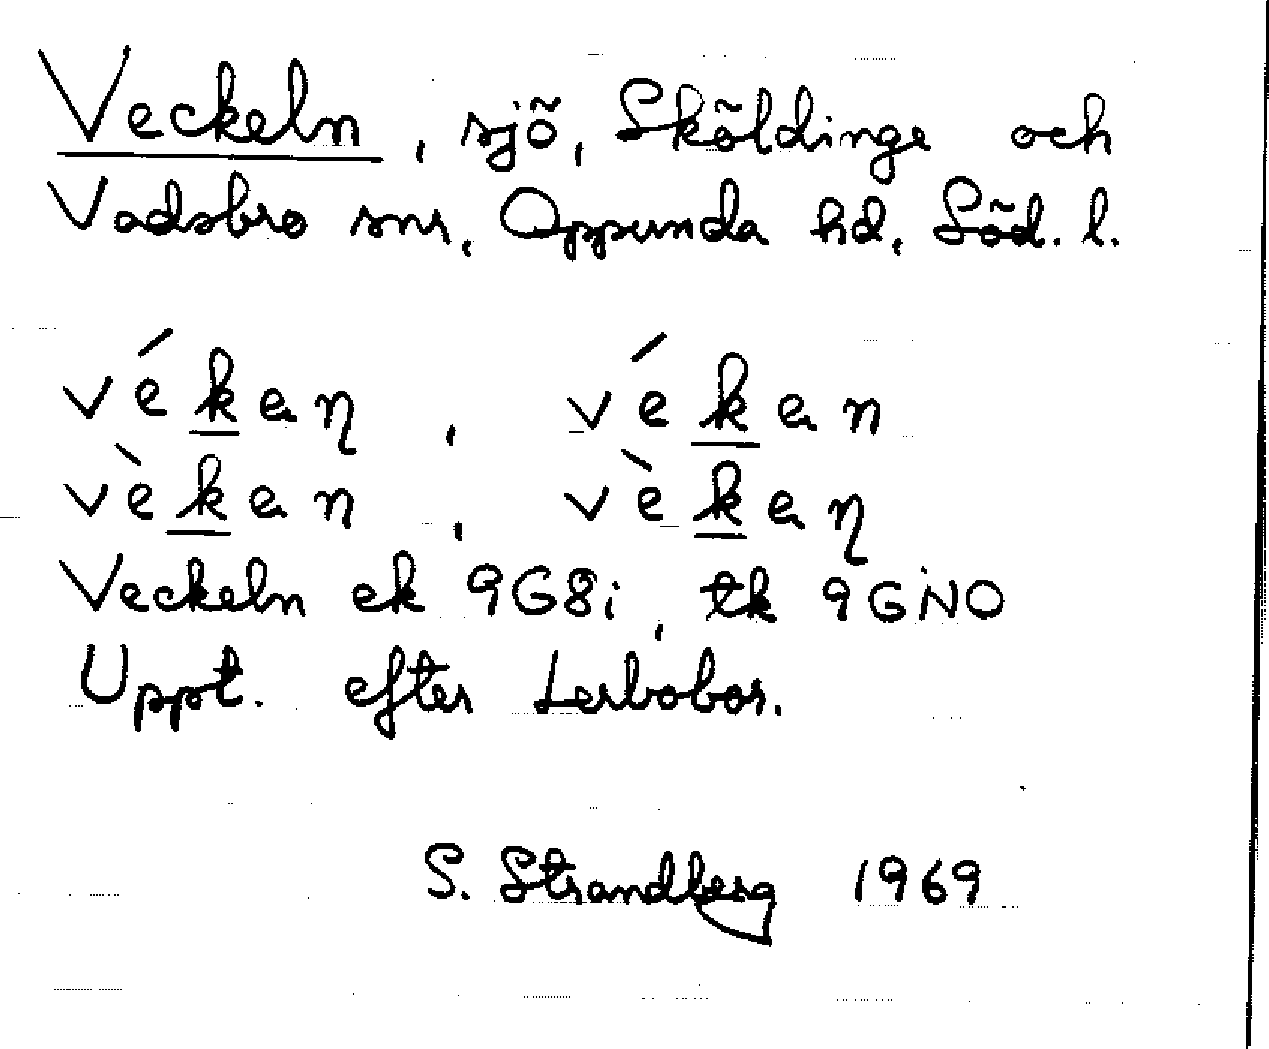 Veckeln, sjö, Sköldinge och
Vadsbro snr, Oppunda hd, Söd. l.
véken̩, véken
vèken, vèken̩
Veckeln ek 9G8i, tk 9G NO
Uppt. efter Lerbobor.
S. Strandberg 1969